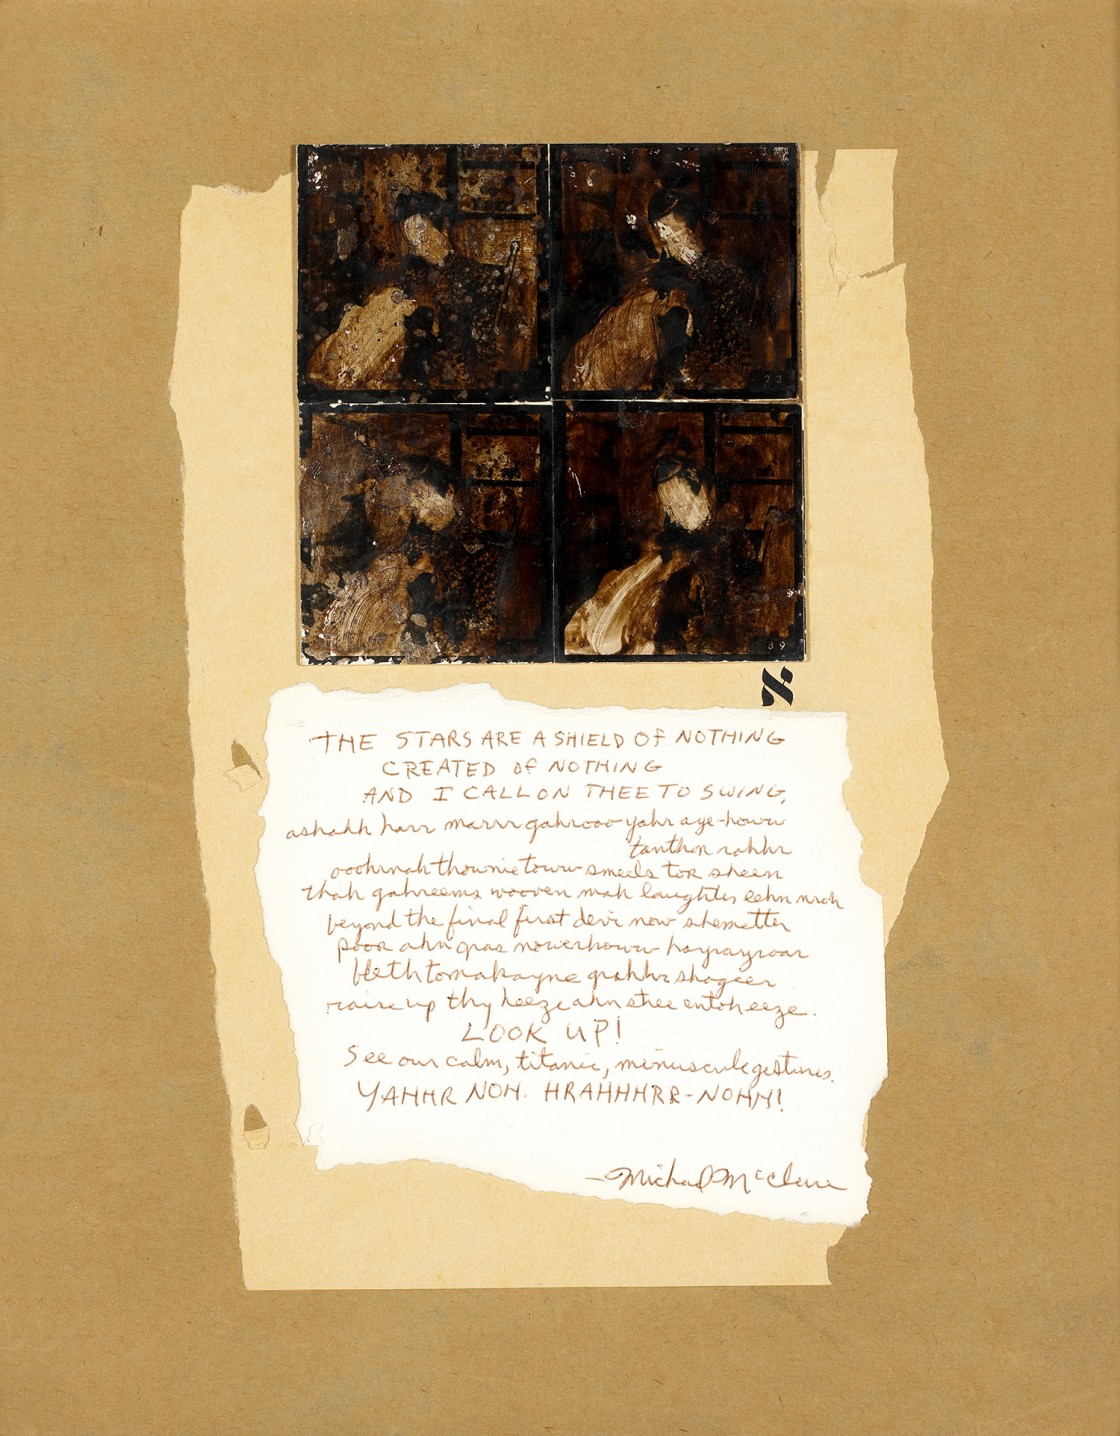 23
39
THE STARS ARE A SHIELD OF NOTHING
CREATED OF NOTHING
AND I CALL ON THEE TO SWING,
ashahh harr marrr gahrooo yahr aye-howw
tanthor rahhr
oohrnah thownie toww smeels tor sheen
thah gahreems wooven mah laughter eehn nroh
beyond the final first devi now shemetter
poor ahn gras nowerhoww hayrayroar
bleth tomakayne grahhr shageer
raise up thy heeze ahn shee entoheeze.
LOOK UP!
See our calm, titanic, minuscule gestures.
YAHHR NOH. HRAHHHRR-NOHH!
—Michael McClure